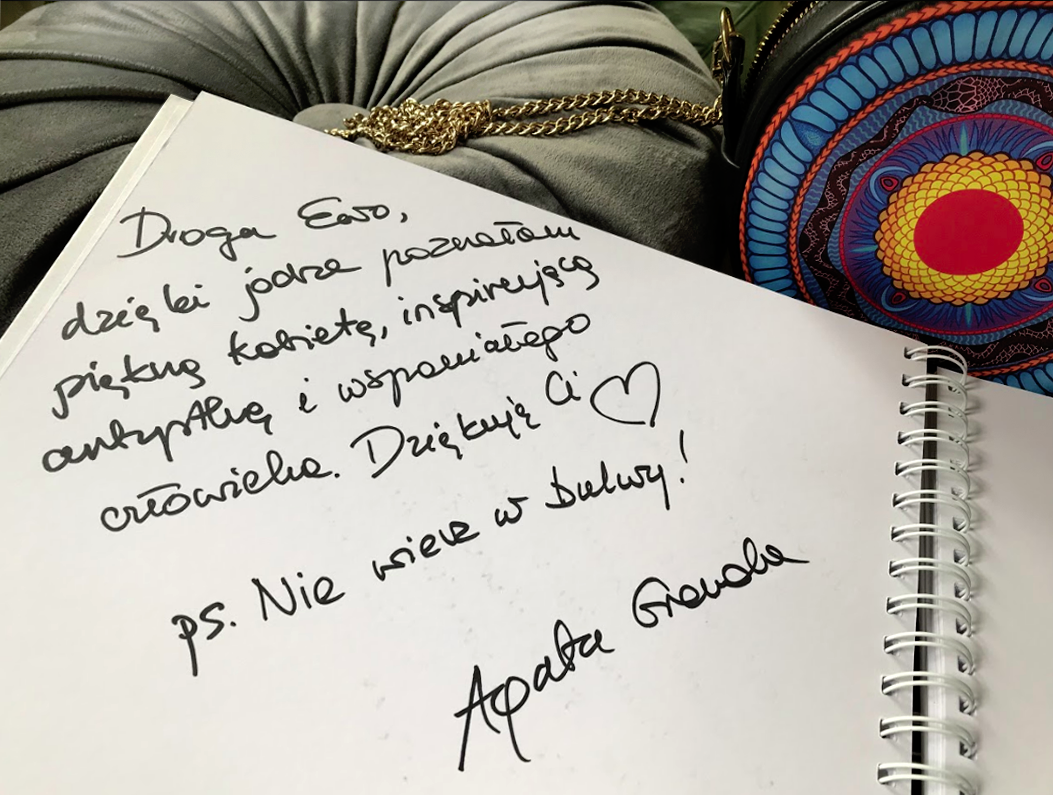 Droga Ewo,
dzięki jodze poznałam
piękną kobietę, inspirującą
artystkę i wspaniałego
człowieka. Dziękuję Ci ♡
ps. Nie wierz w Bulwy!
Agata